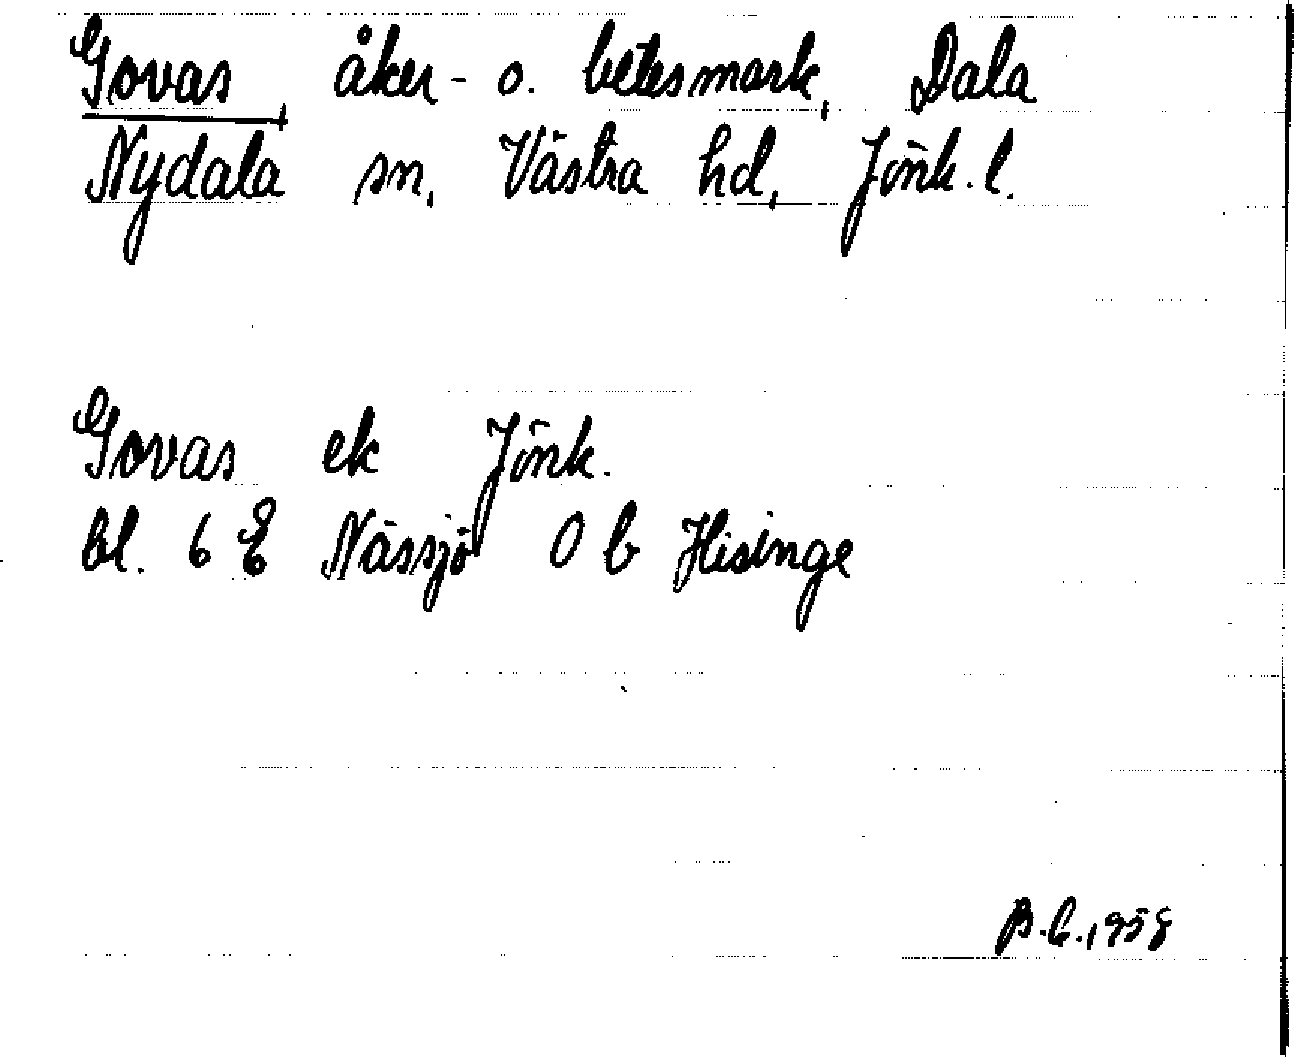 Govas, åker- o. betesmark, Dala
Nydala sn, Västra hd, Jönk. l.
Govas ek Jönk.
bl. 6 E Nässjö 0 b Hisinge
B.E. 1958